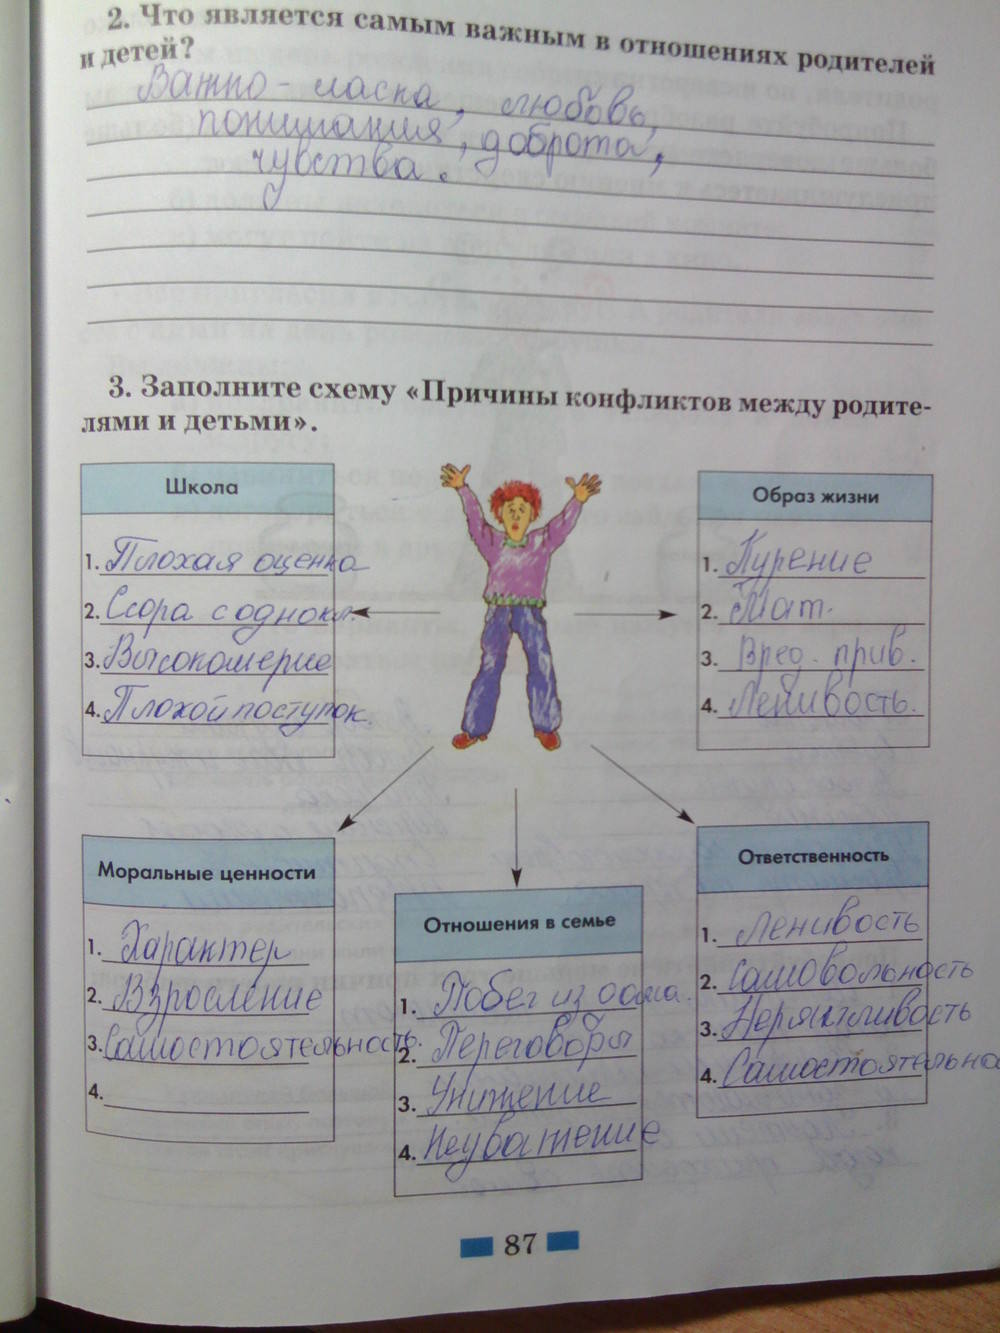 2. Что является самым важным в отношениях родителей
и детей?
Важно - ласка, любовь,
понимания, доброта,
чувства.
3. Заполните схему «Причины конфликтов между родите-
лями и детьми».
Школа
1. Плохая оценка
2. Ссора с однокл.
3. Высокомерие
4. Плохой поступок.
Образ жизни
1. Курение
2. Мат.
3. Вред. прив.
4. Ленивость.
Моральные ценности
1. Характер
2. Взросление
3. Самостоятельность.
4.
Отношения в семье
1. Побег из дома.
2. Переговоры
3. Унижение
4. Неуважение
Ответственность
1. Ленивость
2. Самовольность
3. Неряшливость
4. Самостоятельно
87